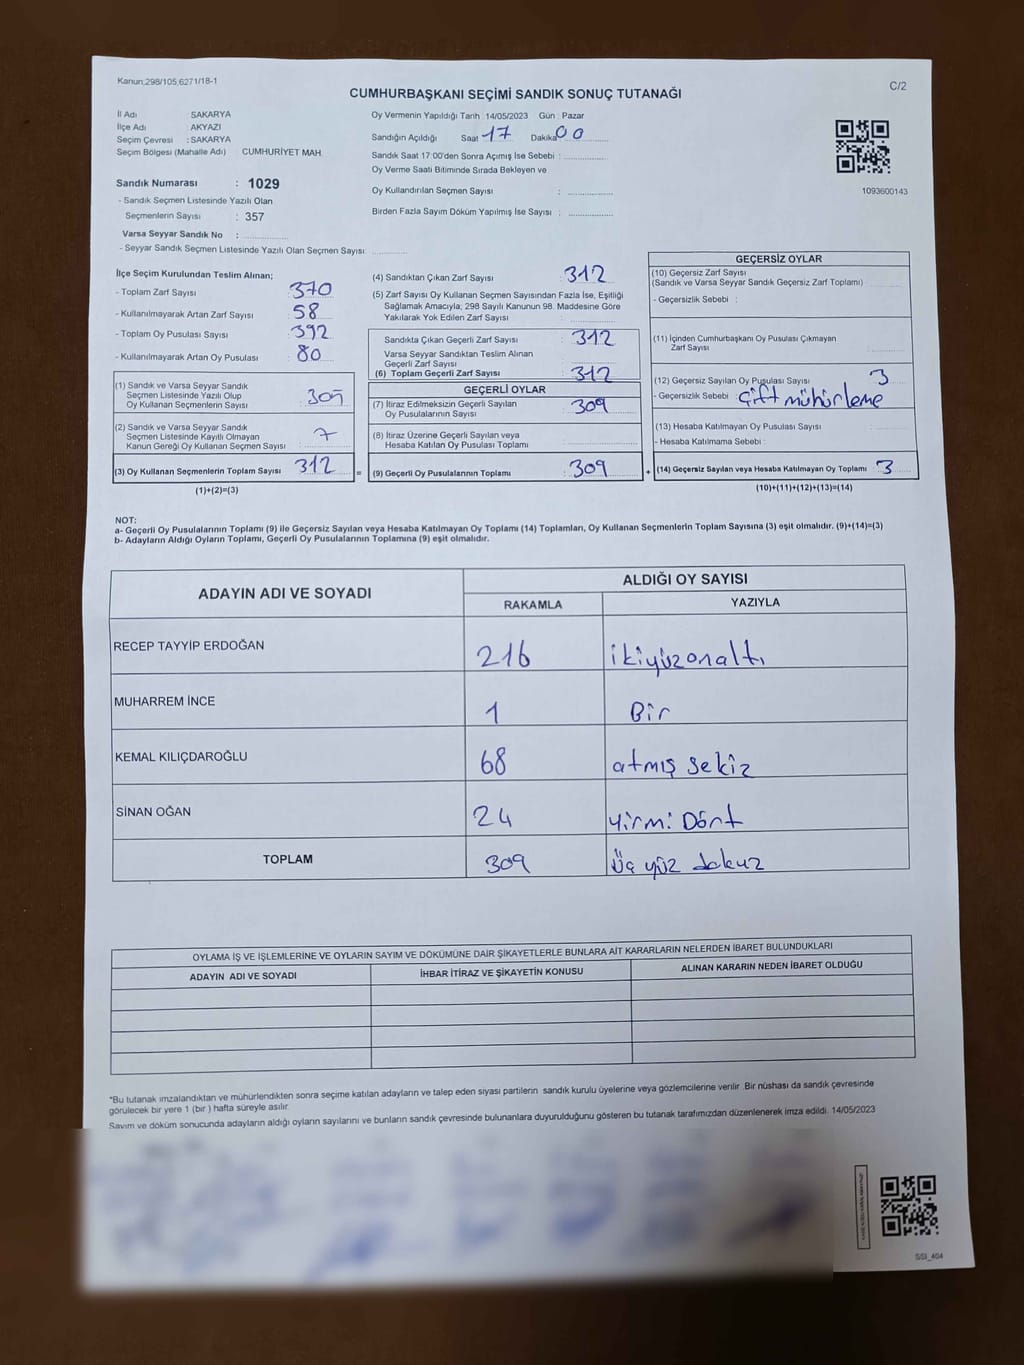 Kanun;298/105,6271/18-1
C/2
CUMHURBAŞKANI SEÇİMİ SANDIK SONUÇ TUTANAĞI
İl Adı SAKARYA
İlçe Adı : AKYAZI
Seçim Çevresi : SAKARYA
Seçim Bölgesi (Mahalle Adı) CUMHURİYET MAH.
Sandık Numarası : 1029
- Sandık Seçmen Listesinde Yazılı Olan
Seçmenlerin Sayısı : 357
Varsa Seyyar Sandık No :
- Seyyar Sandık Seçmen Listesinde Yazılı Olan Seçmen Sayısı
Oy Vermenin Yapıldığı Tarih 14/05/2023 Gün : Pazar
Sandığın Açıldığı Saat 17 Dakika 00
Sandık Saat 17:00'den Sonra Açımış İse Sebebi :
Oy Verme Saati Bitiminde Sırada Bekleyen ve
Oy Kullandırılan Seçmen Sayısı :
Birden Fazla Sayım Döküm Yapılmış İse Sayısı :
1093600143
İlçe Seçim Kurulundan Teslim Alınan;
- Toplam Zarf Sayısı : 370
- Kullanılmayarak Artan Zarf Sayısı : 58
- Toplam Oy Pusulası Sayısı : 392
- Kullanılmayarak Artan Oy Pusulası : 80
(1) Sandık ve Varsa Seyyar Sandık
Seçmen Listesinde Yazılı Olup
Oy Kullanan Seçmenlerin Sayısı : 305
(2) Sandık ve Varsa Seyyar Sandık
Seçmen Listesinde Kayıtlı Olmayan
Kanun Gereği Oy Kullanan Seçmen Sayısı : 7
(3) Oy Kullanan Seçmenlerin Toplam Sayısı 312 =
(1)+(2)=(3)
(4) Sandıktan Çıkan Zarf Sayısı 312
(5) Zarf Sayısı Oy Kullanan Seçmen Sayısından Fazla İse, Eşitliği
Sağlamak Amacıyla; 298 Sayılı Kanunun 98. Maddesine Göre
Yakılarak Yok Edilen Zarf Sayısı :
Sandıkta Çıkan Geçerli Zarf Sayısı : 312
Varsa Seyyar Sandıktan Teslim Alınan
Geçerli Zarf Sayısı
(6) Toplam Geçerli Zarf Sayısı : 312
GEÇERLİ OYLAR
(7) İtiraz Edilmeksizin Geçerli Sayılan
Oy Pusulalarının Sayısı : 309
(8) İtiraz Üzerine Geçerli Sayılan veya
Hesaba Katılan Oy Pusulası Toplamı
(9) Geçerli Oy Pusulalarının Toplamı : 309 +
GEÇERSİZ OYLAR
(10) Geçersiz Zarf Sayısı
(Sandık ve Varsa Seyyar Sandık Geçersiz Zarf Toplamı)
- Geçersizlik Sebebi :
(11) İçinden Cumhurbaşkanı Oy Pusulası Çıkmayan
Zarf Sayısı
(12) Geçersiz Sayılan Oy Pusulası Sayısı 3
- Geçersizlik Sebebi : Çift mühürleme
(13) Hesaba Katılmayan Oy Pusulası Sayısı
- Hesaba Katılmama Sebebi :
(14) Geçersiz Sayılan veya Hesaba Katılmayan Oy Toplamı 3
(10)+(11)+(12)+(13)=(14)
NOT:
a- Geçerli Oy Pusulalarının Toplamı (9) ile Geçersiz Sayılan veya Hesaba Katılmayan Oy Toplamı (14) Toplamları, Oy Kullanan Seçmenlerin Toplam Sayısına (3) eşit olmalıdır. (9)+(14)=(3)
b- Adayların Aldığı Oyların Toplamı, Geçerli Oy Pusulalarının Toplamına (9) eşit olmalıdır.
ADAYIN ADI VE SOYADI ALDIĞI OY SAYISI
RAKAMLA YAZIYLA
RECEP TAYYİP ERDOĞAN 216 ikiyüzonaltı
MUHARREM İNCE 1 Bir
KEMAL KILIÇDAROĞLU 68 atmış sekiz
SİNAN OĞAN 24 Yirmi Dört
TOPLAM 309 Üç yüz dokuz
OYLAMA İŞ VE İŞLEMLERİNE VE OYLARIN SAYIM VE DÖKÜMÜNE DAİR ŞİKAYETLERLE BUNLARA AİT KARARLARIN NELERDEN İBARET BULUNDUKLARI
ADAYIN ADI VE SOYADI İHBAR İTİRAZ VE ŞİKAYETİN KONUSU ALINAN KARARIN NEDEN İBARET OLDUĞU
*Bu tutanak imzalandıktan ve mühürlendikten sonra seçime katılan adayların ve talep eden siyasi partilerin sandık kurulu üyelerine veya gözlemcilerine verilir. Bir nüshası da sandık çevresinde
görülecek bir yere 1 (bir ) hafta süreyle asılır.
Sayım ve döküm sonucunda adayların aldığı oyların sayılarını ve bunların sandık çevresinde bulunanlara duyurulduğunu gösteren bu tutanak tarafımızdan düzenlenerek imza edildi. 14/05/2023
SSI_404